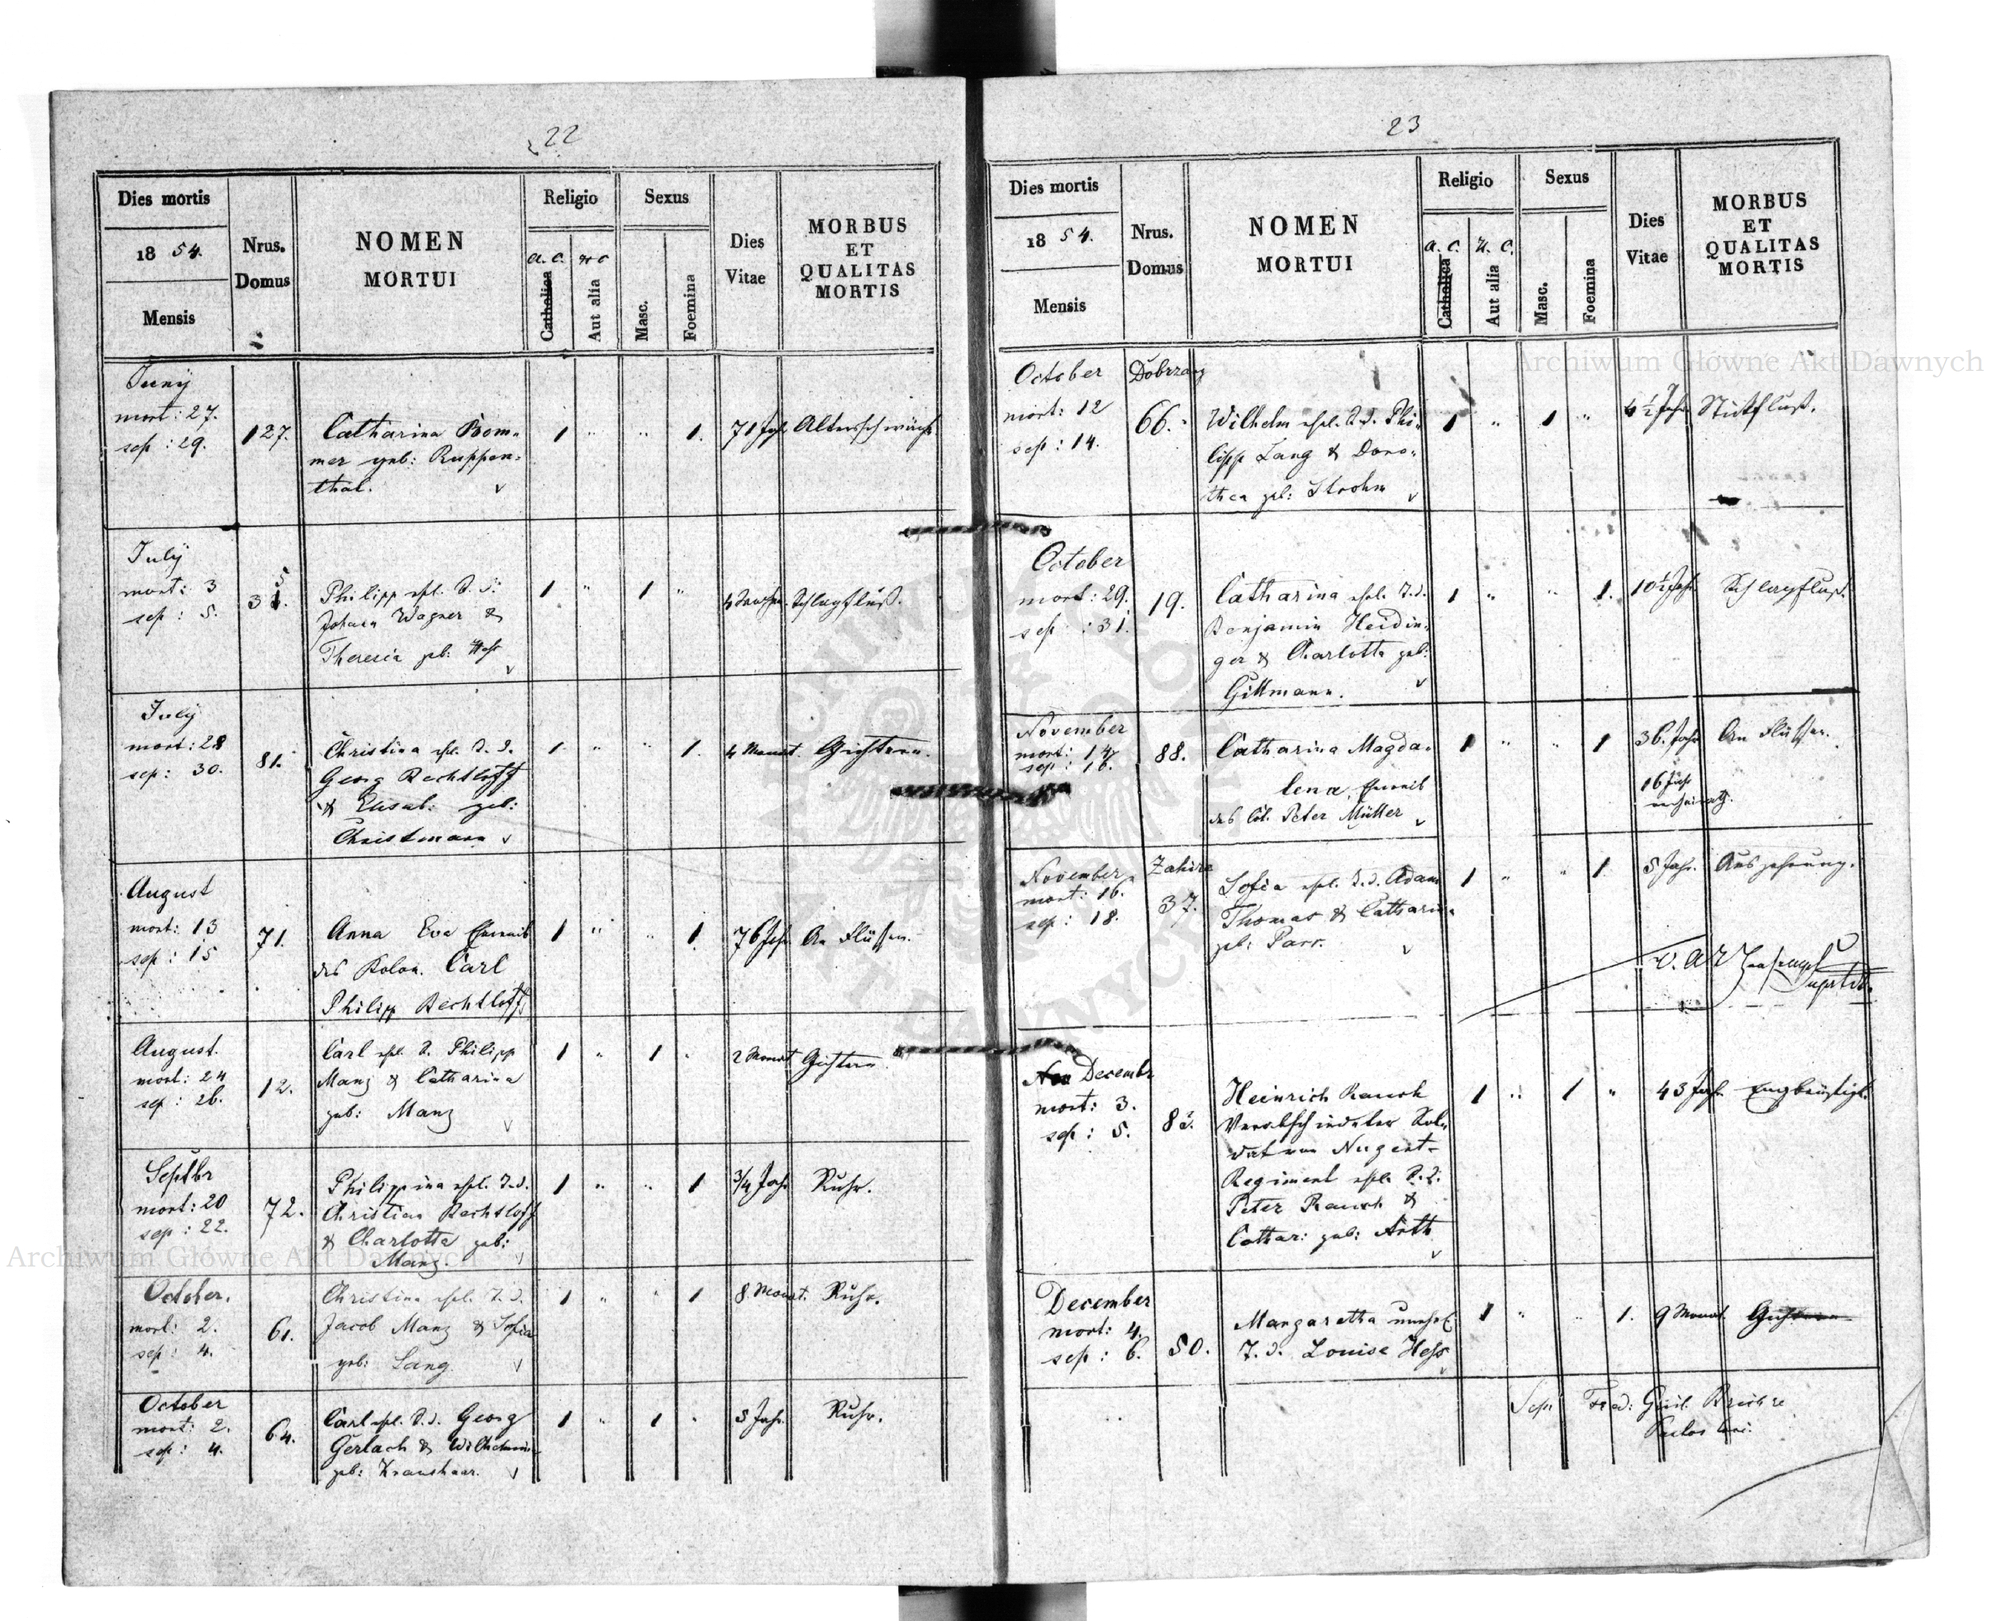 22
Dies mortis
1854.
Mensis
Nrus.
Domus
NOMEN
MORTUI
Religio
a. c.
Catholica
Aut alia
Sexus
Masc.
Foemina
Dies
Vitae
MORBUS
ET
QUALITAS
MORTIS
Juny
mort: 27.
sep: 29.
127.
Catharina Bom-
mer geb: Ruppen-
thal.
1 " " 1.
71 Jahr
Altersschwäche
July
mort: 3
sep: 5.
Philipp ehl. S. d.
Johann Wagner &
Theresia geb: Hess
1 " 1 "
4 Wochen.
Schlagfluß.
July
mort: 28
sep: 30.
81.
Christina ehl. T. d.
Georg Bechtloff
& Elisab: geb:
Christmann
1. " " 1.
4 Monat.
Gichtern.
August
mort: 13
sep: 15
71.
Anna Eva Eheweib
des Kolon. Carl
Philipp Bechtloff
1 " " 1.
76 Jahr
An Flüssen.
August.
mort: 24
sep: 26.
12.
Carl ehl. S. Philipp
Manz & Catharina
geb: Manz
1 " 1 "
2 Monat
Gichtern
Septbr
mort: 20
sep: 22.
72.
Philippina ehl. T. d.
Christian Bechtloff
& Charlotta geb:
Manz.
1 " " 1
3/4 Jahr
Ruhr.
October.
mort: 2.
sep: 4.
61.
Christina ehl. T. d.
Jacob Manz & Sofia
geb: Lang.
1 " " 1
8 Monat.
Ruhr.
October
mort: 2.
sep: 4.
64.
Carl ehl. S. d. Georg
Gerlach & Wilhelmine
geb: Kraushaar.
1 " 1 "
Jahr.
Ruhr.
23
Dies mortis
1854.
Mensis
Nrus.
Domus
NOMEN
MORTUI
Religio
a. c. H. C.
Catholica
Aut alia
Sexus
Masc.
Foemina
Dies
Vitae
MORBUS
ET
QUALITAS
MORTIS
October
mort: 12
sep: 14.
66.
Wilhelm ehl. S. d. Phi-
lipp Lang & Doro-
thea geb: Strohm
1 " 1 "
Jahr
Stickfluß.
October
mort: 29.
sep: 31.
19.
Catharina ehl. T. d.
Benjamin Heidin-
ger & Charlotta geb:
Gittmann.
1 " " 1.
10 1/2 Jahr
Schlagfluß.
November
mort: 14
sep: 16.
88.
Catharina Magda-
lena, Eheweib
des Col. Peter Müller
1 " " 1
36. Jahr
16 Jahr
An Flüssen.
November
mort: 16.
sep: 18.
37.
Sofia ehl. T. d. Adam
Thomas & Catharin
geb: Parr.
1 " " 1
5 Jahr.
Auszehrung.
Decembr
mort: 3.
sep: 5.
Heinrich Rauch
Verabschiedeter Sol-
dat von Nugent-
Regiment ehl. S. d.
Peter Rauch &
Cathar: geb: Arth
1 " 1 "
43 Jahr
December
mort: 4.
sep: 6.
50.
Margaretha unehel.
T. d. Louise Hess
1 " " 1.
9 Monat
Gichtern
Archiwum Główne Akt Dawnych
Archiwum Główne Akt Dawnych
ARCHIWUM GŁÓWNE AKT DAWNYCH